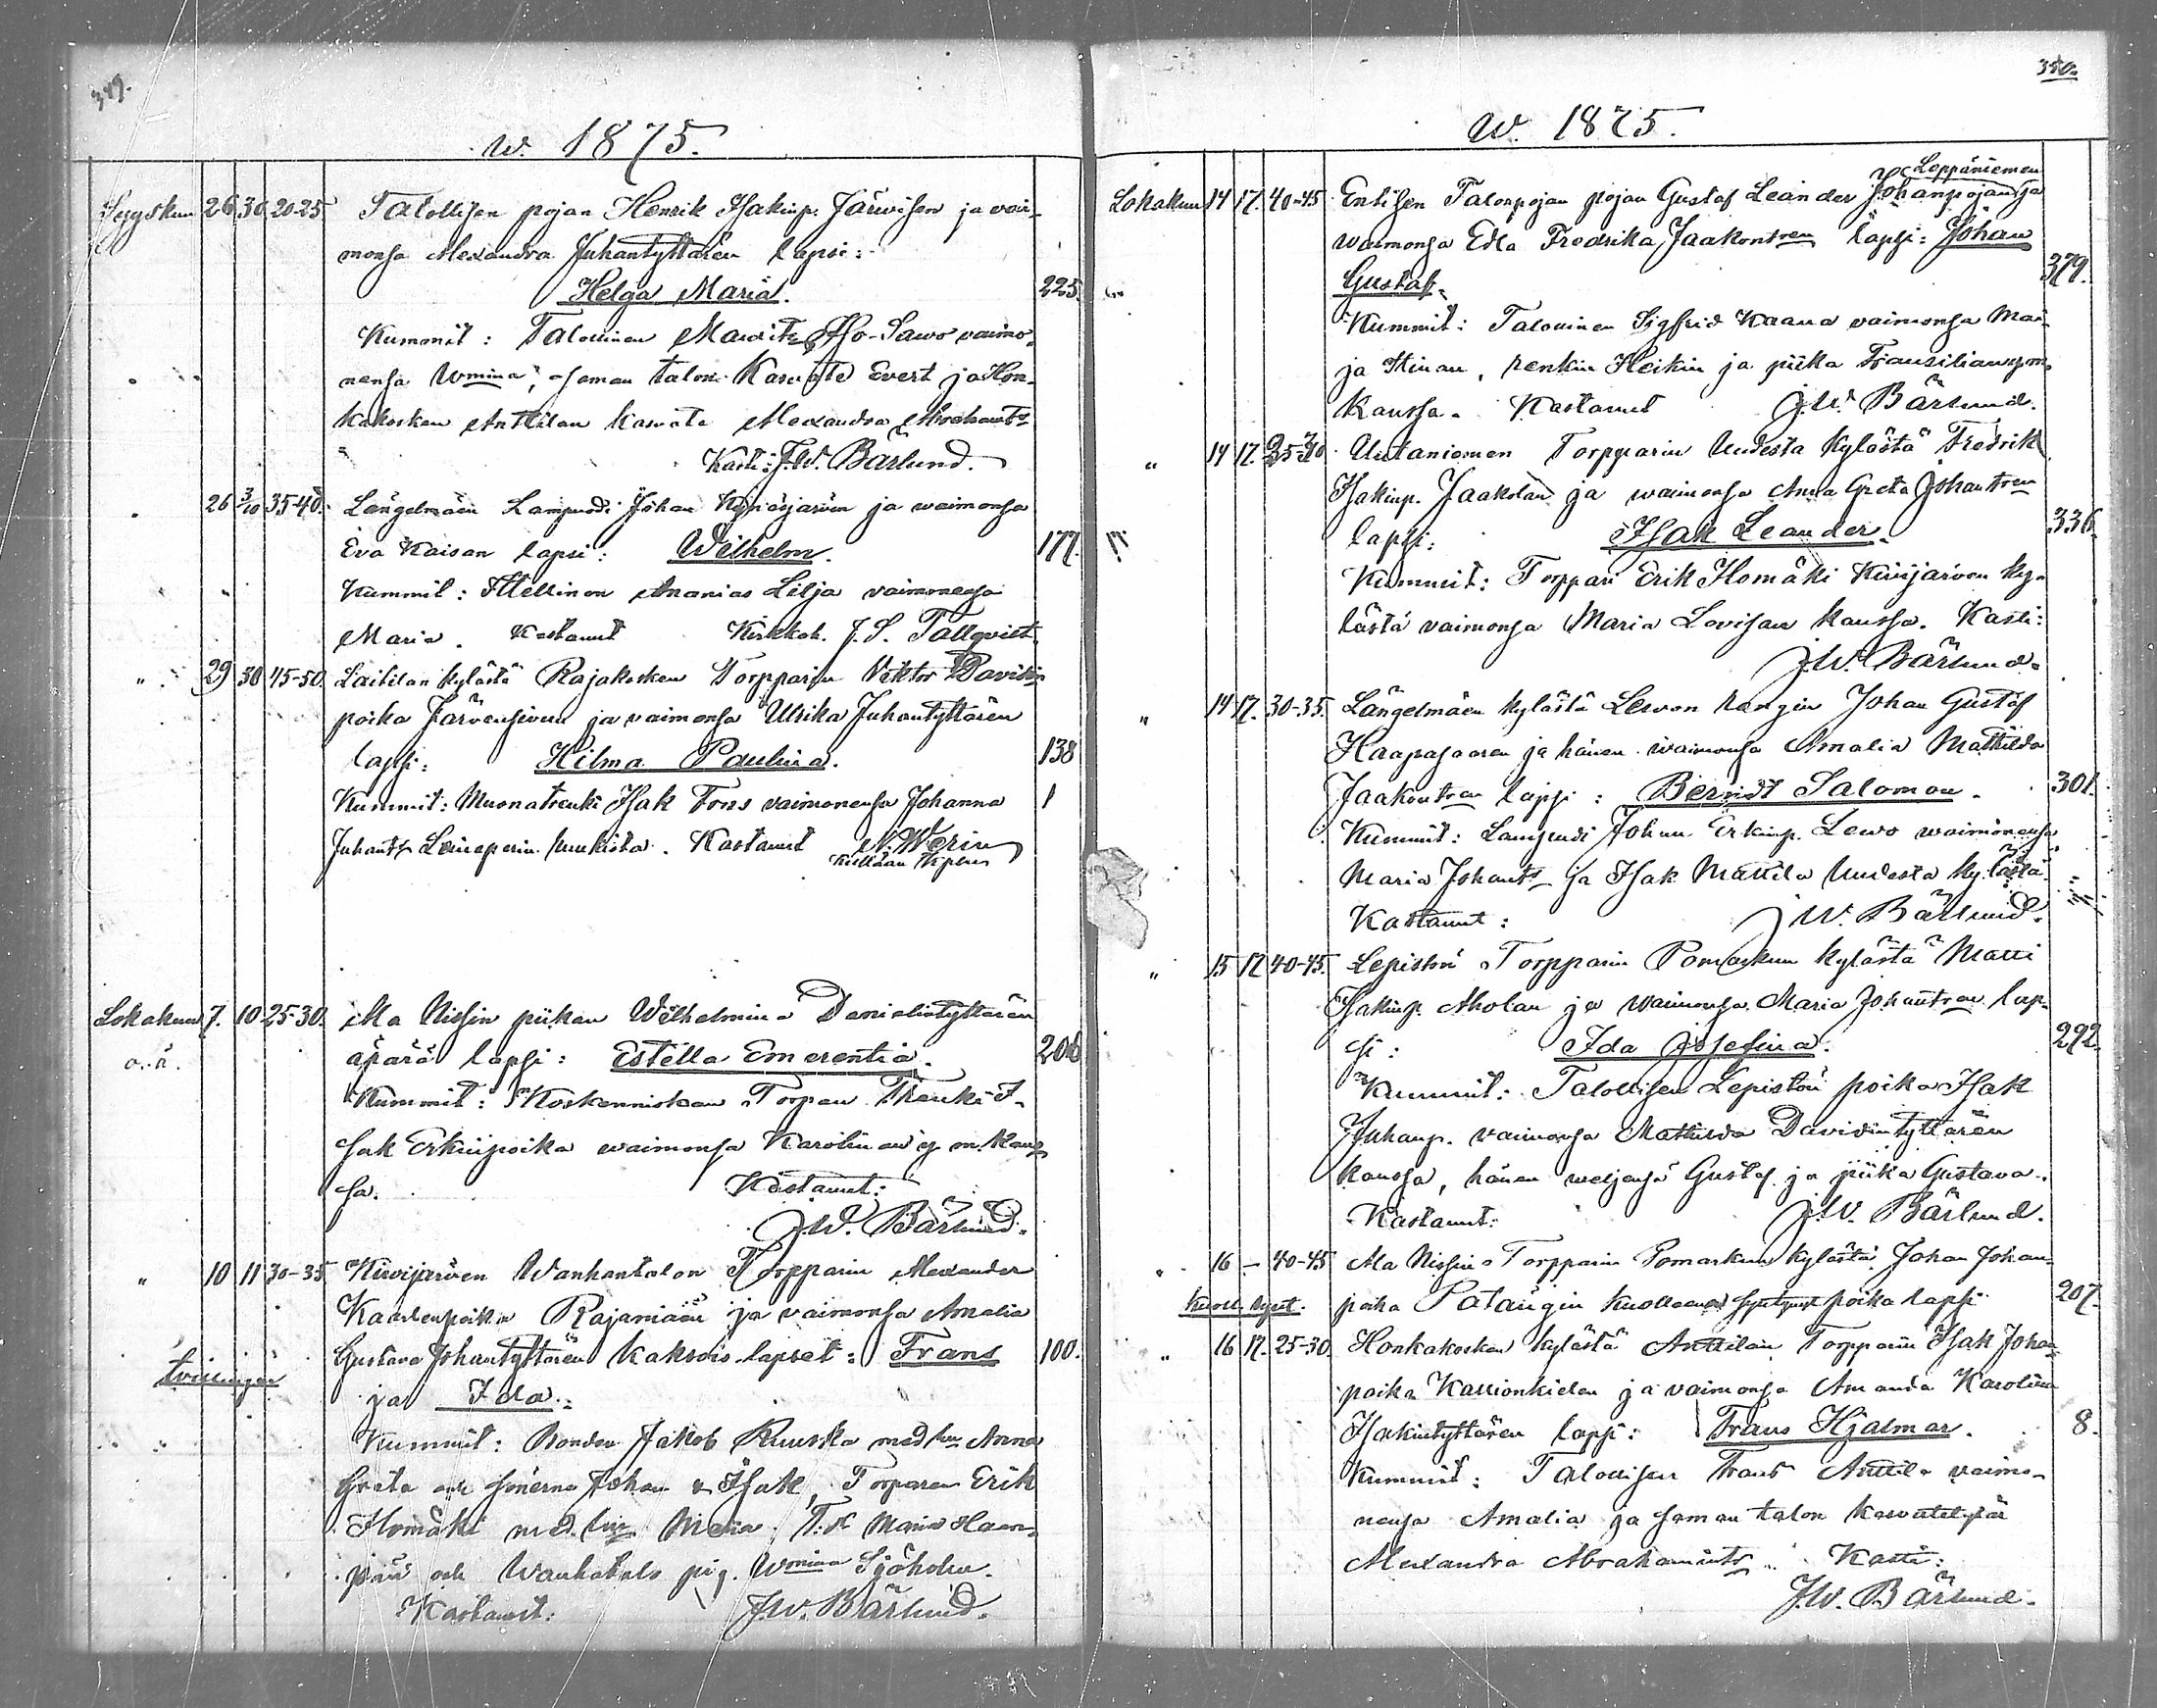 349.
w. 1875.
Syyskuu 26 30 20-25 Talollisen pojan Henrik Isakinp. Järwisen ja vai-
monsa Alexandra Juhantyttären lapsi:
Helga Maria. 225.
Kummit: Talollinen Mauritz Iso-Sawo vaimo-
nensa Wmina, saman talon Kaswate Evert ja Hon-
kakosken Anttilan kaswate Alexandra Abrahamts
Kasti: J.W. Bärlund.
26 3/10 35-40. Längelmäen Lampuodi Johan ja waimonsa
Eva Kaisan lapsi: Wilhelm. 177.
Kummit: Itellinen Ananias Lilja vaimonensa
Maria. Kastanut Kirkkoh. J. S. Tallqvist
" 29 30 45-50. Laitilan kylästä Rajakosken Torpparin Viktor Davidin
poika Järvensivun ja vaimonsa Ulrika Juhantyttären
lapsi: Hilma Paulina. 138
Kummit: Muonatrenki Isak Fors vaimonensa Johanna 1
Juhants Leineperin ruukista. Kastanut N. Werin
Lokakuu 7. 10 25-30. Ala Nissin piikan Wilhelmina Danielintyttären
o. ä. äpärä lapsi: Estella Emerentia. 206
Kummit: Koskenniskan Torpan Trenki I-
sak Erkinpoika waimonsa Karolinan y. m. kans
sa. Kastanut:
J.W. Bärlund.
" 10 11 30-35 Kiwijärven Wanhantalon Torpparin Alexander
Kaarlenpoika Rajaniään ja vaimonsa Amalia
Gustava Johantyttären kaksois-lapset: Frans 100.
tvillingar
ja Ida.
Kummit: Bonden Jakob Ruuska med hu Anna
Greta och sönerna Johan & Isak, Torparen Erik
Ilomäki med hu Maria T. d. Maria Haan-
pää och Wanhatalo pig. Wmina Sjöholm.
Kastanut: J.W. Bärlund.
350.
w. 1875.
Leppäniemen
Lokakuu 14 17. 40-45. Entisen Talonpojan pojan Gustaf Leander Johanpojan ja
waimonsa Edla Fredrika Jaakontren lapsi: Johan
Gustaf. 379.
Kummit: Talollinen Sigfrid Kaara vaimonsa Mai-
ja Stinan, renkin Heikin ja piika Fransilian y. m.
kanssa. Kastanut J.W. Bärlund.
" 14 17. Uutaniemen Torpparin Uudesta kylästä Fredrik
Isakinp. Jaakolan ja waimonsa Anna Greta Johantren
lapsi: Isak Leander. 336.
Kummit: Torppari Erik Ilomäki Kiwijärven ky-
lästä vaimonsa Maria Lovisan kanssa. Kasti:
J.W. Bärlund.
" 14 17. 30-35. Längelmäen kylästä Lewon rengin Johan Gustaf
Haapasaaren ja hänen waimonsa Amalia Mathilda
Jaakontren lapsi: Berndt Salomon. 301.
Kummit: Lampuodi Johan Erkinp. Lewo waimonensa
Maria Johants ja Isak Mattila Uudesta kylästä.
Kastanut: J.W. Bärlund.
" 15 17 40-45. Lepistön Torpparin Pomarkun kylästä Matti
Isakinp. Aholan ja waimonsa Maria Johantren lap-
si: Ida Josefina. 292.
Kummit: Talollisen Lepistön poika Isak
Juhanp. vaimonsa Mathilda Davidintyttären
kanssa, hänen weljensä Gustaf ja piika Gustava.
Kastanut: J.W. Bärlund.
" 16 — 40-45 Ala Nissin Torpparin Pomarkun kylästä Johan Johan-
kuoll. synt. poika Patangin kuolleena syntynyt poika lapsi 207.
" 16 17. 25-30. Honkakosken kylästä Anttilan Torpparin Isak Johan-
poika Kallionkielen ja vaimonsa Amanda Karolina
Isakintyttären lapsi: Frans Hjalmar. 8.
Kummit: Talollisen Frans Anttila vaimo-
nensa Amalia ja saman talon kaswatetytär
Alexandra Abrahamints. Kasti:
J.W. Bärlund.